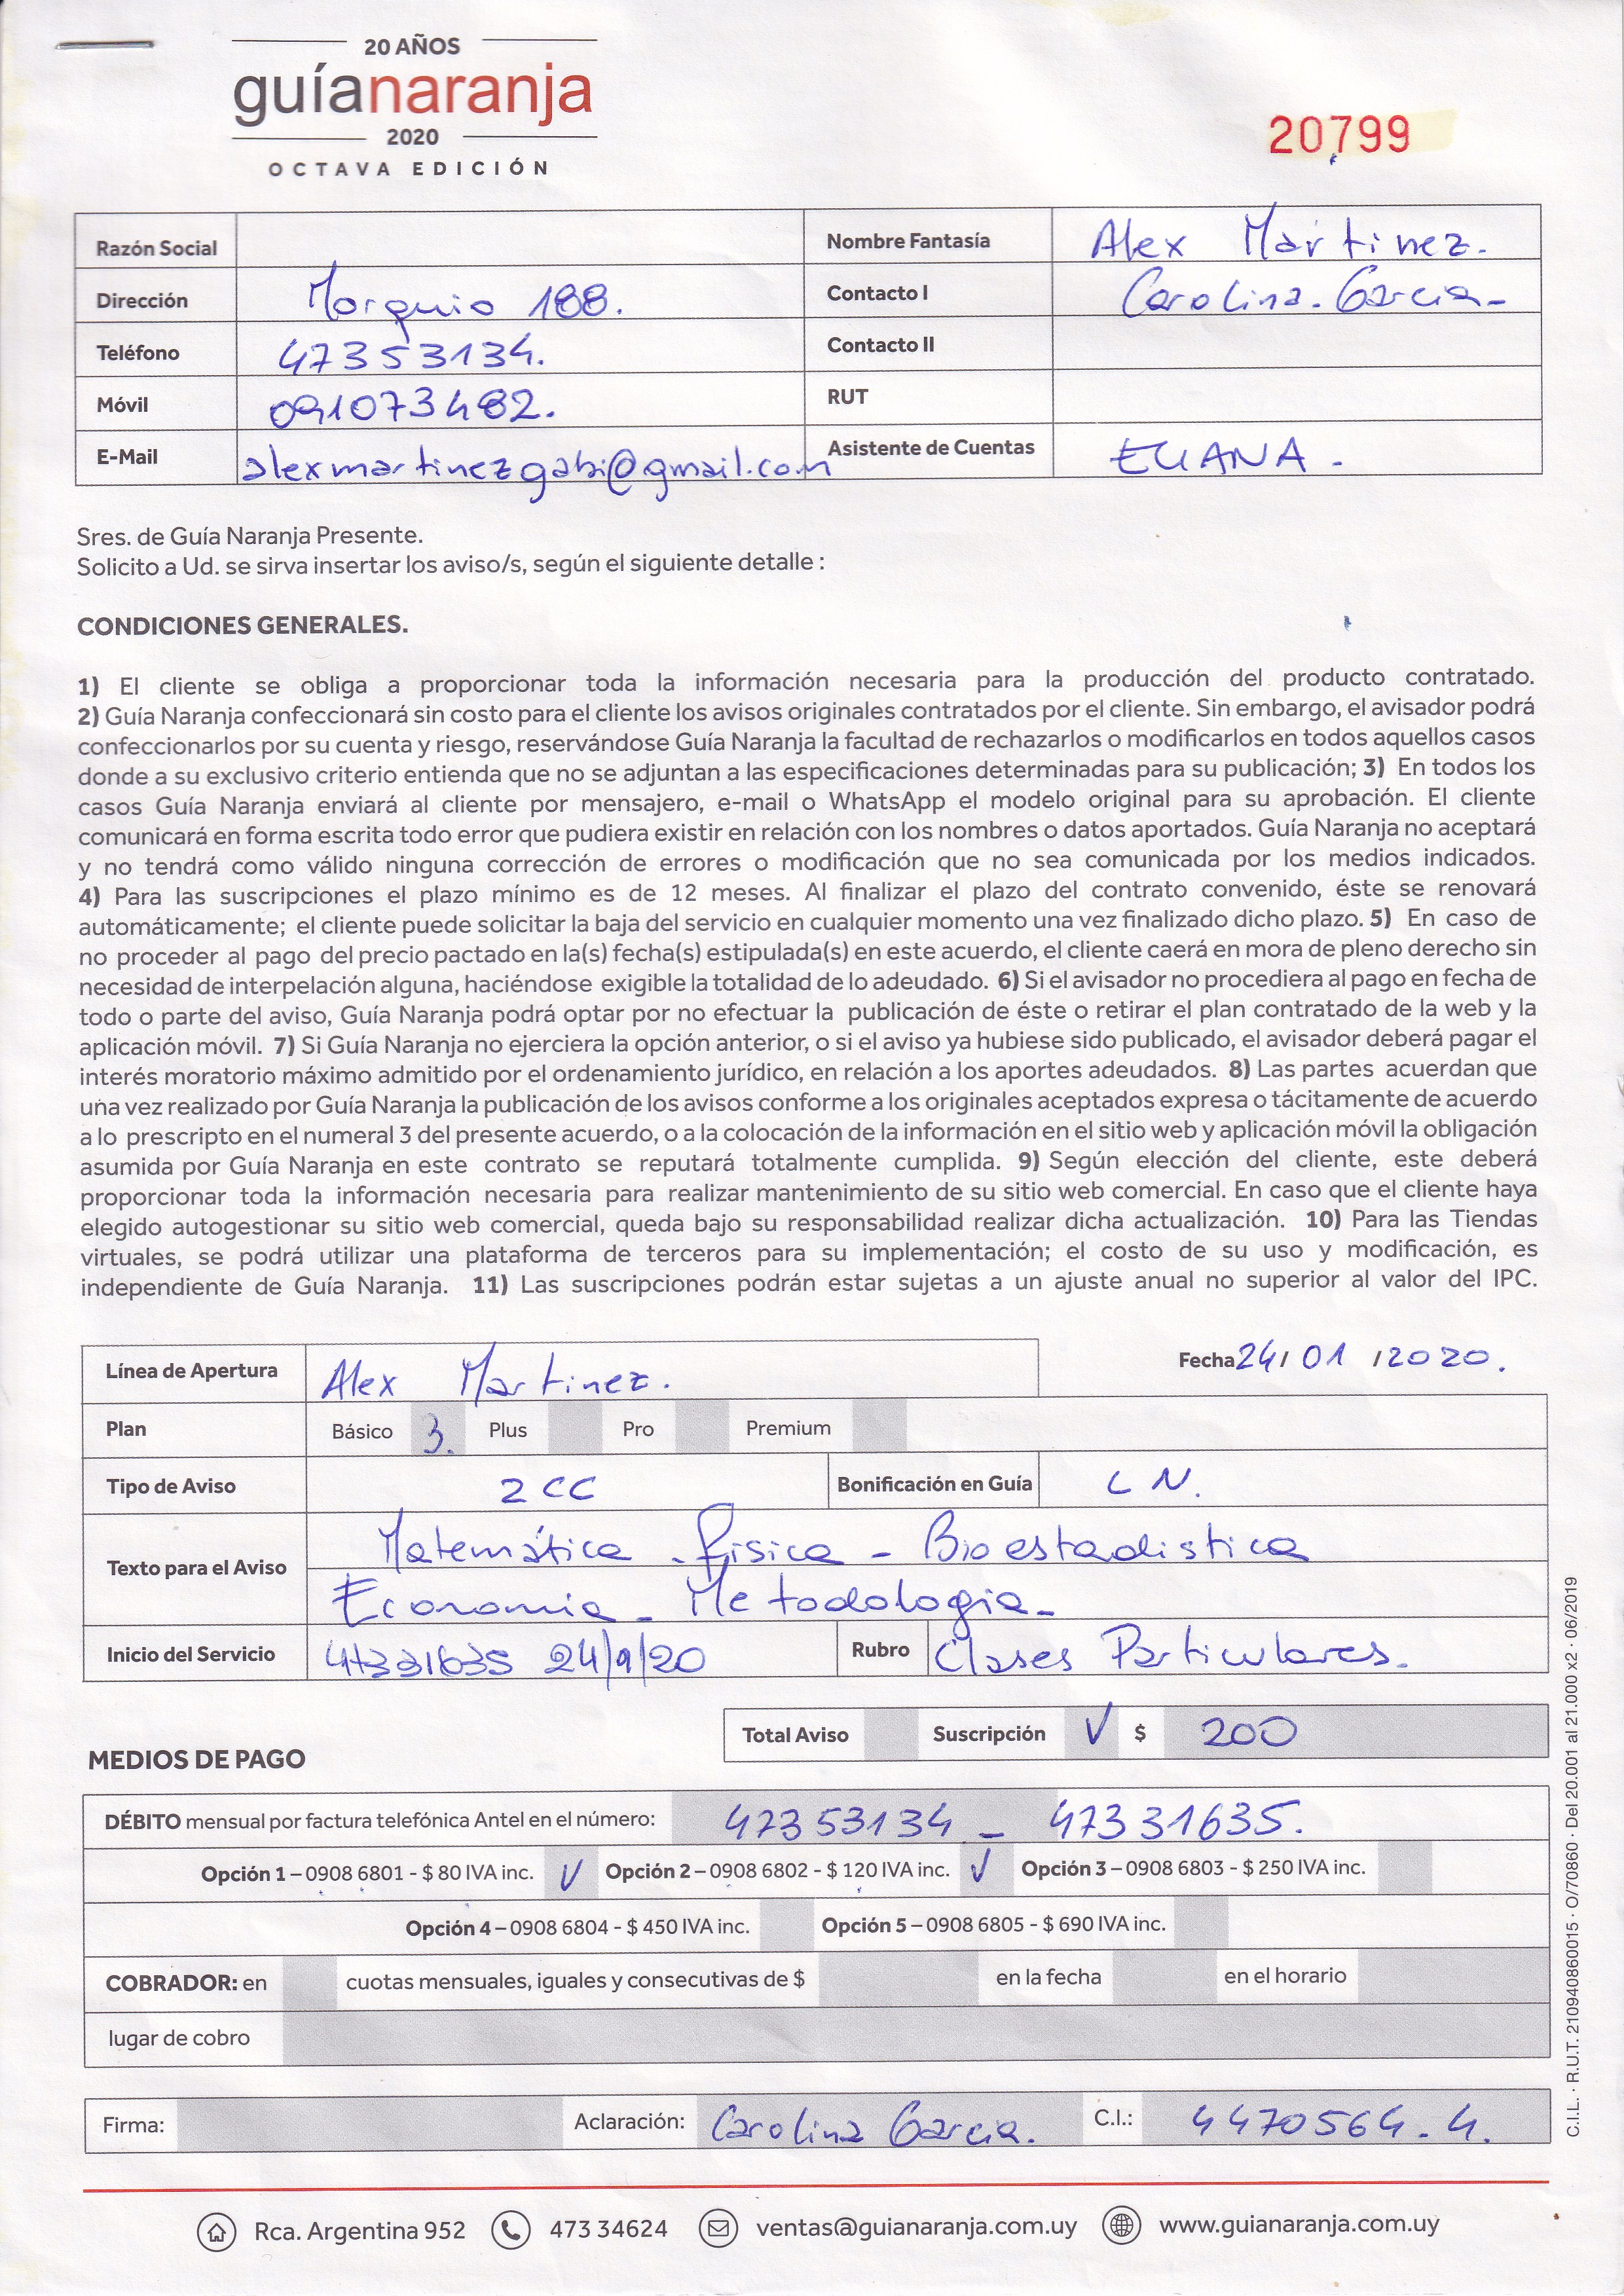 20 AÑOS
guíanaranja
2020
OCTAVA EDICIÓN
20799
Razón Social
Nombre Fantasía Alex Martinez.
Dirección Morquio 188.
Contacto I Carolina. Garcia-
Teléfono 47353134.
Contacto II
Móvil 091073482.
RUT
E-Mail alexmartinezgabi@gmail.com
Asistente de Cuentas ELIANA.
Sres. de Guía Naranja Presente.
Solicito a Ud. se sirva insertar los aviso/s, según el siguiente detalle :
CONDICIONES GENERALES.
1) El cliente se obliga a proporcionar toda la información necesaria para la producción del producto contratado.
2) Guía Naranja confeccionará sin costo para el cliente los avisos originales contratados por el cliente. Sin embargo, el avisador podrá
confeccionarlos por su cuenta y riesgo, reservándose Guía Naranja la facultad de rechazarlos o modificarlos en todos aquellos casos
donde a su exclusivo criterio entienda que no se adjuntan a las especificaciones determinadas para su publicación; 3) En todos los
casos Guía Naranja enviará al cliente por mensajero, e-mail o WhatsApp el modelo original para su aprobación. El cliente
comunicará en forma escrita todo error que pudiera existir en relación con los nombres o datos aportados. Guía Naranja no aceptará
y no tendrá como válido ninguna corrección de errores o modificación que no sea comunicada por los medios indicados.
4) Para las suscripciones el plazo mínimo es de 12 meses. Al finalizar el plazo del contrato convenido, éste se renovará
automáticamente; el cliente puede solicitar la baja del servicio en cualquier momento una vez finalizado dicho plazo. 5) En caso de
no proceder al pago del precio pactado en la(s) fecha(s) estipulada(s) en este acuerdo, el cliente caerá en mora de pleno derecho sin
necesidad de interpelación alguna, haciéndose exigible la totalidad de lo adeudado. 6) Si el avisador no procediera al pago en fecha de
todo o parte del aviso, Guía Naranja podrá optar por no efectuar la publicación de éste o retirar el plan contratado de la web y la
aplicación móvil. 7) Si Guía Naranja no ejerciera la opción anterior, o si el aviso ya hubiese sido publicado, el avisador deberá pagar el
interés moratorio máximo admitido por el ordenamiento jurídico, en relación a los aportes adeudados. 8) Las partes acuerdan que
una vez realizado por Guía Naranja la publicación de los avisos conforme a los originales aceptados expresa o tácitamente de acuerdo
a lo prescripto en el numeral 3 del presente acuerdo, o a la colocación de la información en el sitio web y aplicación móvil la obligación
asumida por Guía Naranja en este contrato se reputará totalmente cumplida. 9) Según elección del cliente, este deberá
proporcionar toda la información necesaria para realizar mantenimiento de su sitio web comercial. En caso que el cliente haya
elegido autogestionar su sitio web comercial, queda bajo su responsabilidad realizar dicha actualización. 10) Para las Tiendas
virtuales, se podrá utilizar una plataforma de terceros para su implementación; el costo de su uso y modificación, es
independiente de Guía Naranja. 11) Las suscripciones podrán estar sujetas a un ajuste anual no superior al valor del IPC.
Línea de Apertura Alex Martinez.
Fecha 24/ 01 /2020.
Plan Básico 3. Plus Pro Premium
Tipo de Aviso 2 CC Bonificación en Guía L N.
Texto para el Aviso Matemática - Fisica - Bioestadistica
Economia - Metodologia -
Inicio del Servicio 47331635 24/9/20 Rubro Clases Particulares.
Total Aviso Suscripción ✓ $ 200
MEDIOS DE PAGO
DÉBITO mensual por factura telefónica Antel en el número: 47353134 - 47331635.
Opción 1 – 0908 6801 - $ 80 IVA inc. ✓ Opción 2 – 0908 6802 - $ 120 IVA inc. ✓ Opción 3 – 0908 6803 - $ 250 IVA inc.
Opción 4 – 0908 6804 - $ 450 IVA inc. Opción 5 – 0908 6805 - $ 690 IVA inc.
COBRADOR: en cuotas mensuales, iguales y consecutivas de $ en la fecha en el horario
lugar de cobro
Firma: Aclaración: Carolina Garcia. C.I.: 4470564-4.
Rca. Argentina 952 473 34624 ventas@guianaranja.com.uy www.guianaranja.com.uy
C.I.L. · R.U.T. 210940860015 · O/70860 · Del 20.001 al 21.000 x2 · 06/2019